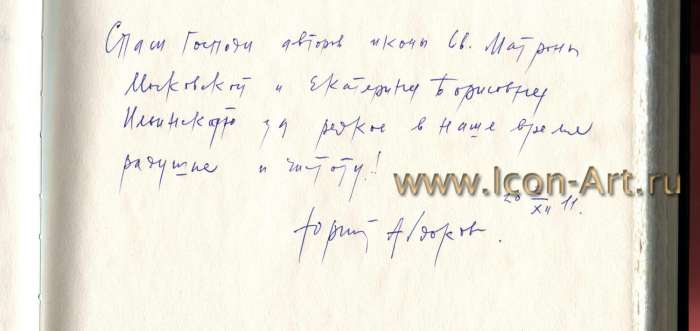 Спаси Господи автора иконы Св. Матроны
Московской и Екатерину Борисовну
Ильинскую за редкое в наше время
радушие и чистоту!
www.Icon-Art.ru
20 XII 11.
Юрий Абдоков.